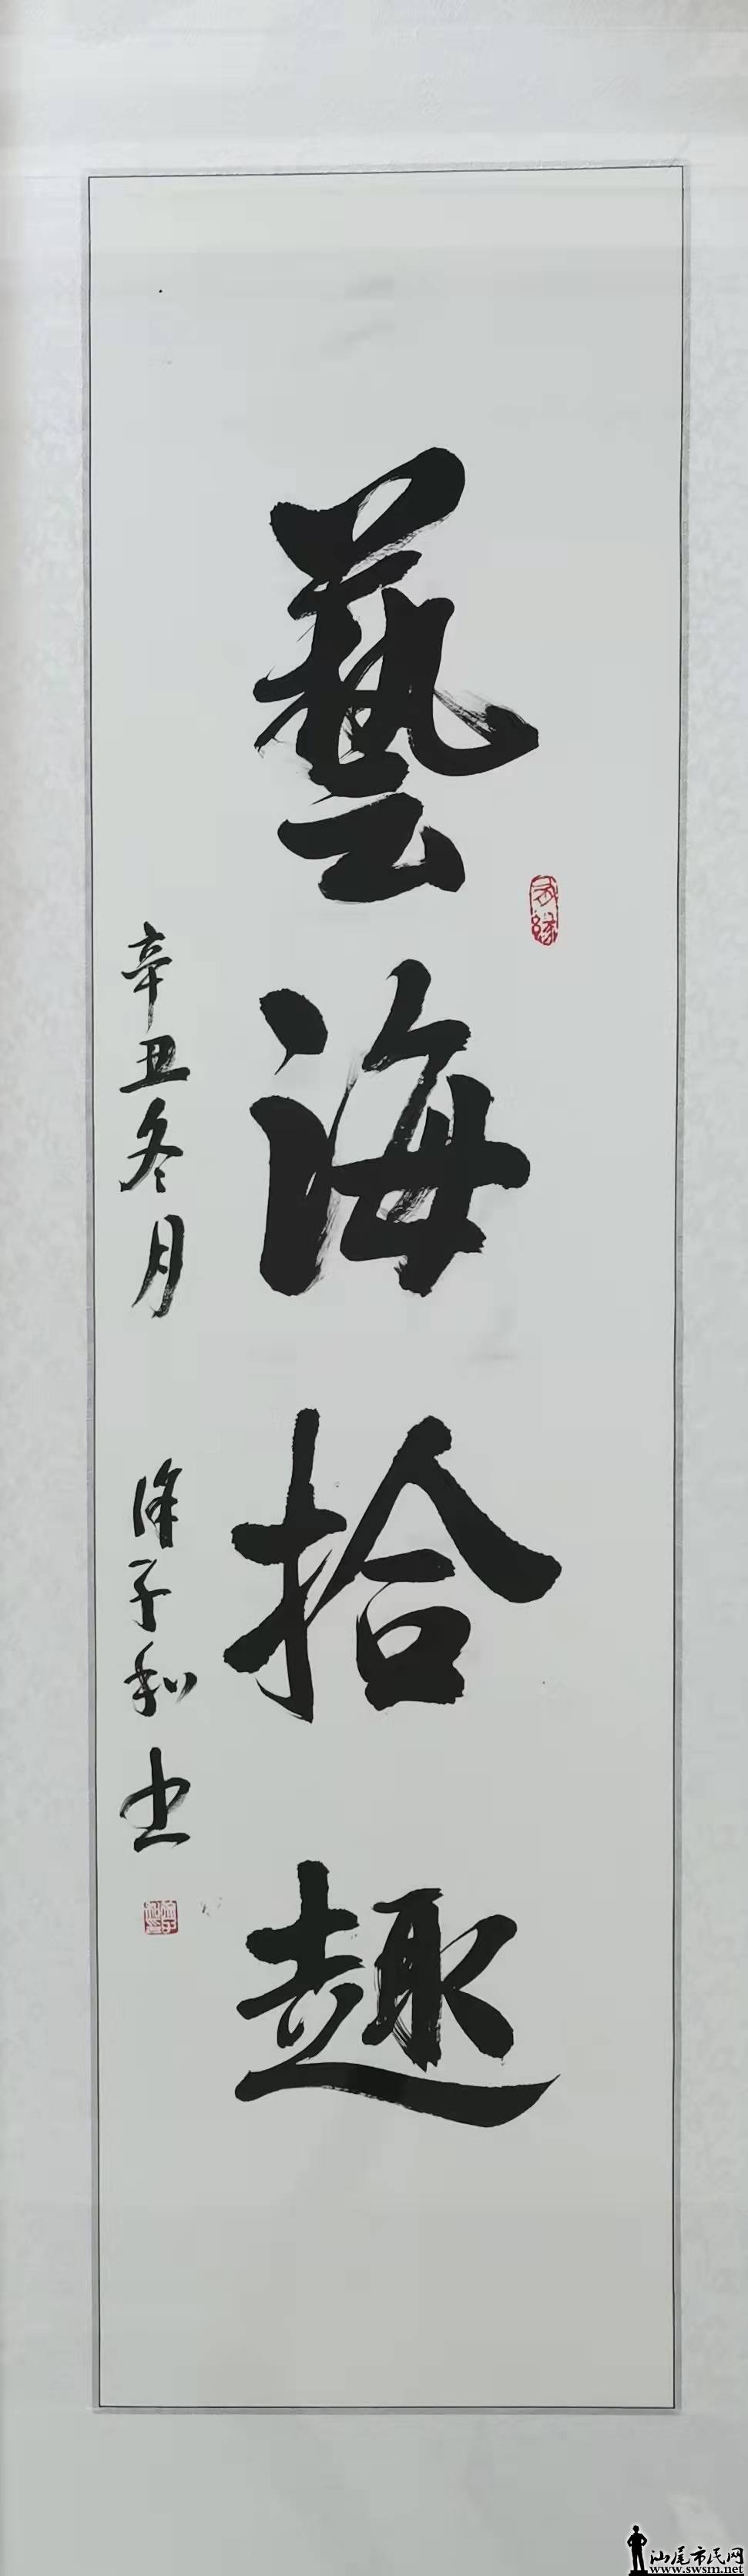 藝海拾趣
辛丑冬月
徐子和书
汕尾市民网
www.swsm.net